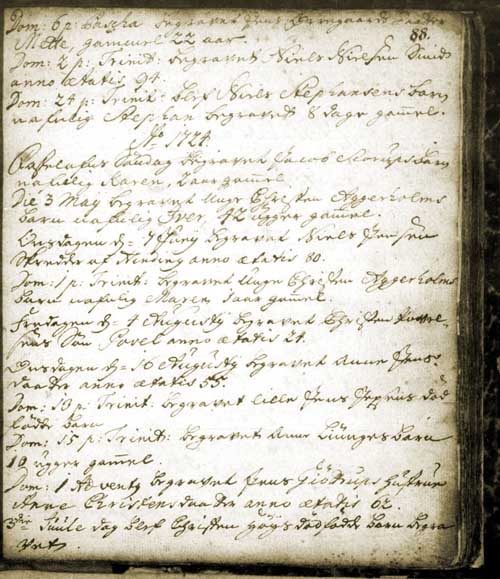 88.
Dom: 6 p: Pascha begravet Jens daatter
Mette, gammel 22 aar.
Dom: 2 p: Trinit: begravet Niels Nielsen Smid
anno ætatis 94.
Dom: 24 p: Trinit: blef Niels Stephansens barn
nafnlig Stephan begravet 8 dage gammel.
Ao 1724.
Søndag begravet Jacob barn
nafnlig Karen, 2 aar gammel
Die 3 May begravet Unge Christen Aggerholms
barn nafnlig Iver, 42 uger gammel.
Onsdagen d= 7 Juny begravet Niels Jensen
Skredder af anno ætatis 80.
Dom: 1 p: Trinit: begravet Unge Christen Aggerholms
barn nafnlig Maren 1 aar gammel.
Fredagen d= 4 Augusty begravet Christen Povel-
sens Søn Povel anno ætatis 21.
Onsdagen d= 16 Augusty begravet Anne Jens-
daatter anno ætatis 55.
Dom: 13 p: Trinit: begravet lille Jens Jepsens død
fødde barn
Dom: 15 p: Trinit: begravet barn
10 uger gammel.
Dom: 1 Adventy begravet Jens hustrue
Anne Christensdaatter anno ætatis 62.
3die Juule dag blef Christen Høgs dødfødde barn begra
vet.